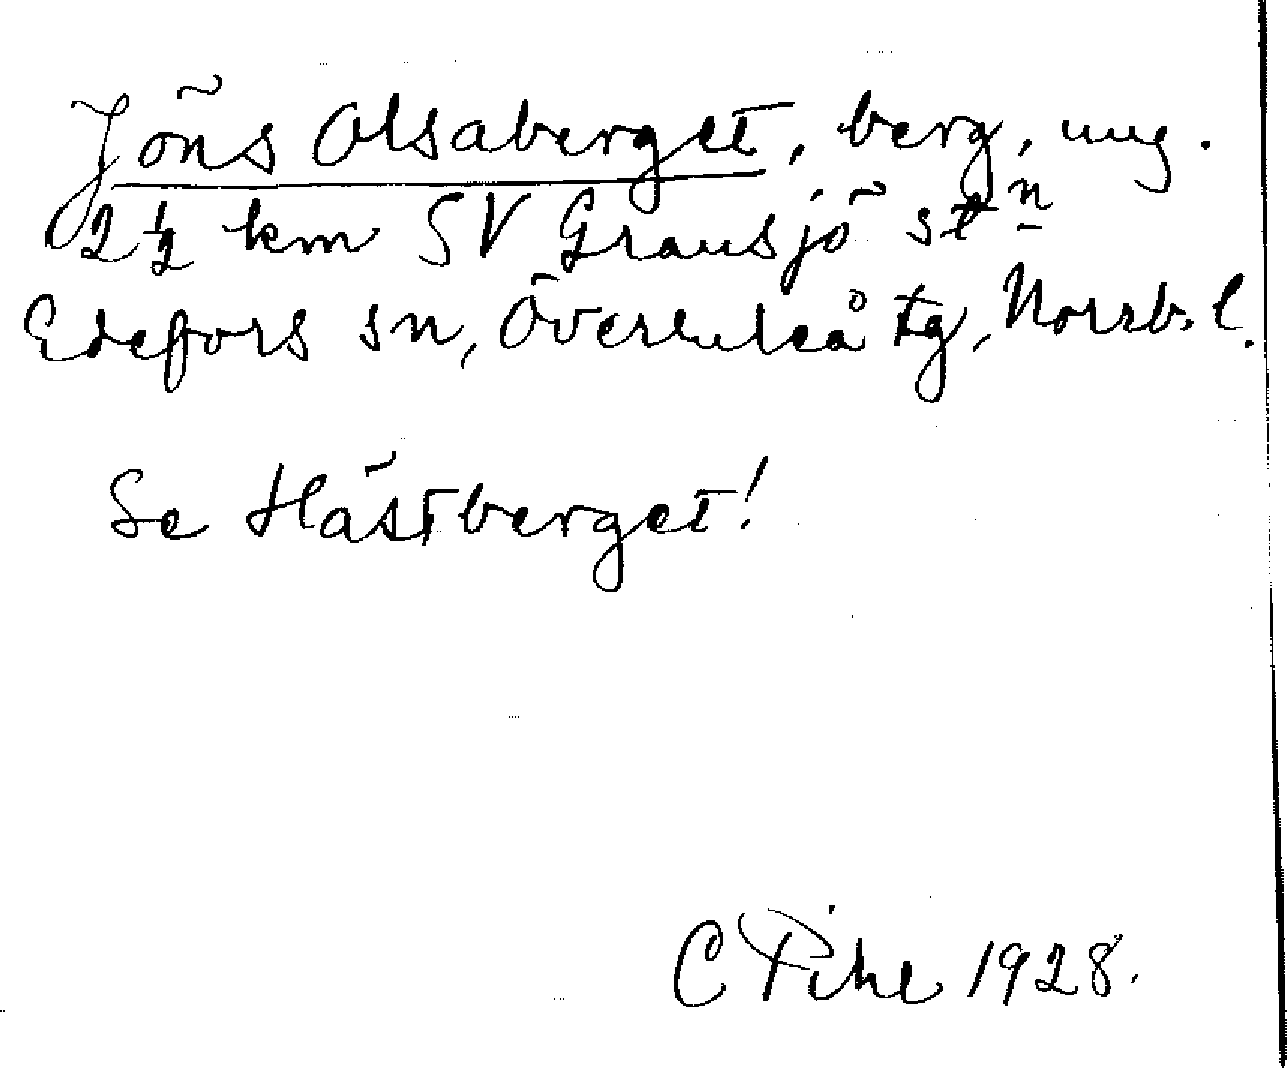 Jöns Olsaberget, berg, ung.
2 ½ km SV Gransjö stn
Edefors sn, Överluleå tg, Norrb. l.
Se Hästberget!
C Pihl 1928.